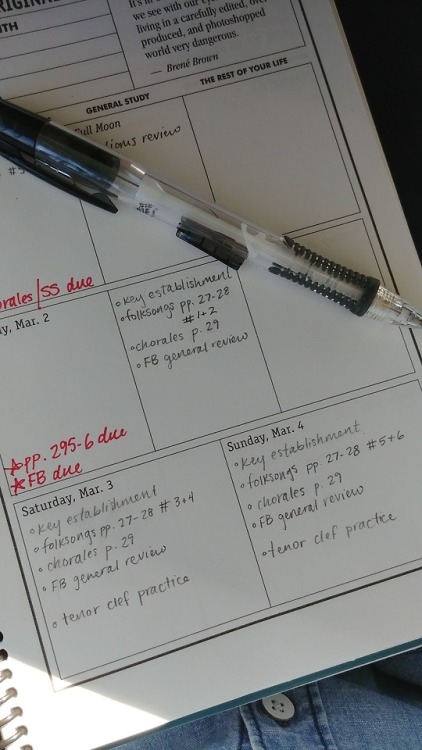 RIGINAL
TH
we see with our
living in a carefully edited, over
produced, and photoshopped
world very dangerous.
— Brené Brown
GENERAL STUDY
THE REST OF YOUR LIFE
Full Moon
review
orales/SS due
y, Mar. 2
key establishment
folksongs pp. 27-28
#1+2
chorales p. 29
FB general review
pp. 295-6 due
FB due
Saturday, Mar. 3
key establishment
folksongs pp. 27-28 #3+4
chorales p. 29
FB general review
tenor clef practice
Sunday, Mar. 4
key establishment
folksongs pp 27-28 #5+6
chorales p. 29
FB general review
tenor clef practice